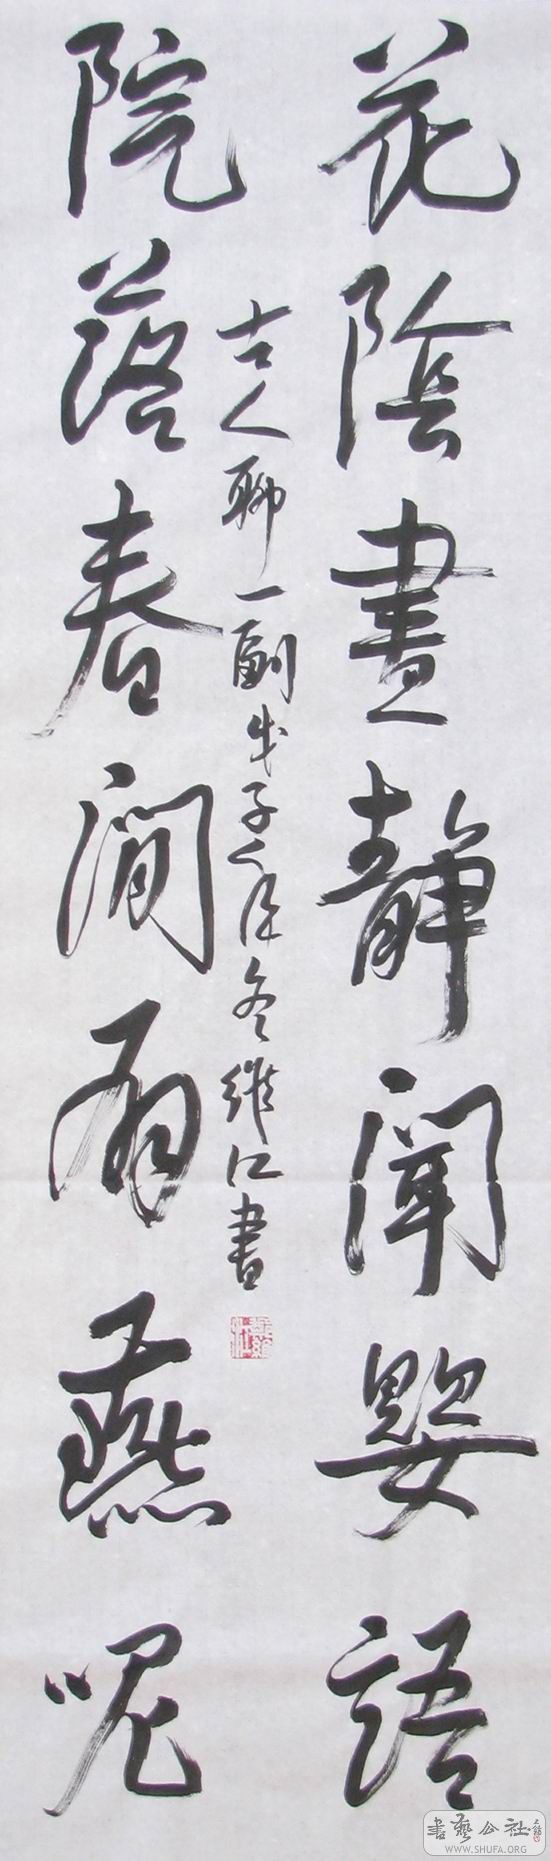 花陰晝靜聞嬰語
院落春澗雨燕呢
古人聊一副戊子之年冬維江書
書藝公社
WWW.SHUFA.ORG